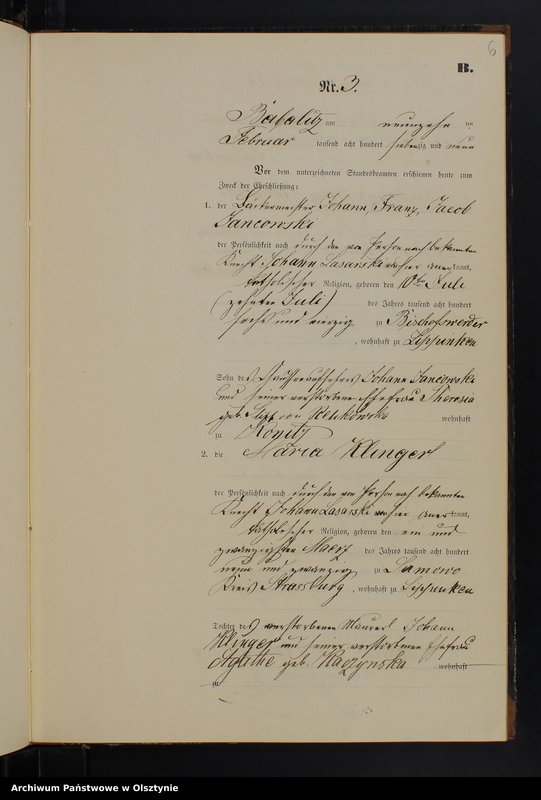 6
B.
Nr. 3.
Babalitz am neunzehn ten
Februar tausend acht hundert siebenzig und neun
Vor dem unterzeichneten Standesbeamten erschienen heute zum
Zweck der Eheschließung:
1. der Johann, Franz, Jacob
Jancowski
der Persönlichkeit nach durch den von Person nach bekannten
Knecht Johann Lasarski anerkannt,
katholischer Religion, geboren den 10ten Juli
(zehnten Juli) des Jahres tausend acht hundert
sechs und vierzig zu Bischofswerder
, wohnhaft zu Lippinken
Sohn des Chausseeaufsehers Johann Jancowski
und seiner verstorbenen Ehefrau Theresia
geb. von wohnhaft
zu Konitz
2. die Maria Klinger
der Persönlichkeit nach durch den von Person nach bekannten
Knecht Johann Lasarski anerkannt,
katholischer Religion, geboren den ein und
zwanzigsten Maerz des Jahres tausend acht hundert
neun und zwanzig zu Samowo
Kreis Strassburg, wohnhaft zu Lippinken
Tochter des verstorbenen Maurers Johann
Klinger und seiner verstorbenen Ehefrau
Agathe geb. Kaczynska wohnhaft
zu
Archiwum Państwowe w Olsztynie